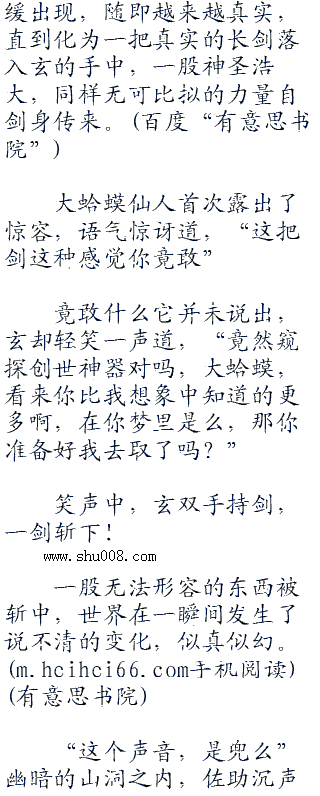 缓出现，随即越来越真实，
直到化为一把真实的长剑落
入玄的手中，一股神圣浩
大，同样无可比拟的力量自
剑身传来。(百度“有意思书
院”)
大蛤蟆仙人首次露出了
惊容，语气惊讶道，“这把
剑这种感觉你竟敢”
竟敢什么它并未说出，
玄却轻笑一声道，“竟然窥
探创世神器对吗，大蛤蟆，
看来你比我想象中知道的更
多啊，在你梦里是么，那你
准备好我去取了吗？”
笑声中，玄双手持剑，
一剑斩下！
www.shu008.com
一股无法形容的东西被
斩中，世界在一瞬间发生了
说不清的变化，似真似幻。
(m.hcihci66.com手机阅读)
(有意思书院)
“这个声音，是兜么”
幽暗的山洞之内，佐助沉声